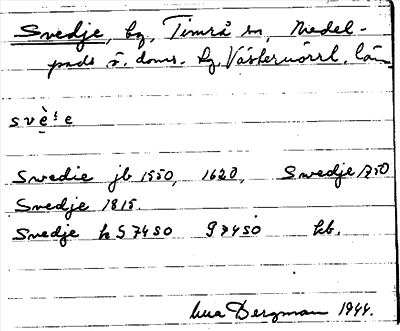 Svedje, by, Timrå sn, Medel-
pads ö. doms. hg, Västernorrl. län
svè'e
Swedie jb 1550, 1620, Svedje 1750
Svedje 1815.
Svedje h 57450 97450 kb.
Bergman 1944.